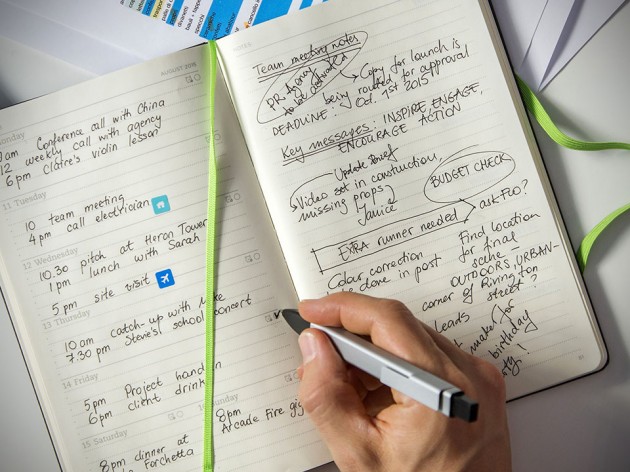 Monday
am Conference call with China
12 weekly call with agency
6 pm Claire's violin lesson
11 Tuesday
10 team meeting
4 pm call electrician
12 Wednesday
10.30 pitch at Heron Tower
1 pm lunch with Sarah
5 pm site visit
13 Thursday
10 am catch up with Mike
7.30 pm Stevie's school concert
14 Friday
5 pm Project hand in
6 pm client drink
15 Saturday
8 pm dinner at
Forchetta
8pm
Arcade Fire gig
NOTES
Team meeting notes
PR Agency
to be
Copy for launch is
being routed for approval
DEADLINE: Oct. 1st 2015
Key messages: INSPIRE, ENGAGE,
ENCOURAGE ACTION
Update brief
Video set in construction,
missing props
Janice
BUDGET CHECK
EXTRA runner needed
ask FLO?
Colour correction
be done in post
Find location
for final
scene
OUTDOORS, URBAN-
corner of Rivington
street?
maker for
birthday
party!